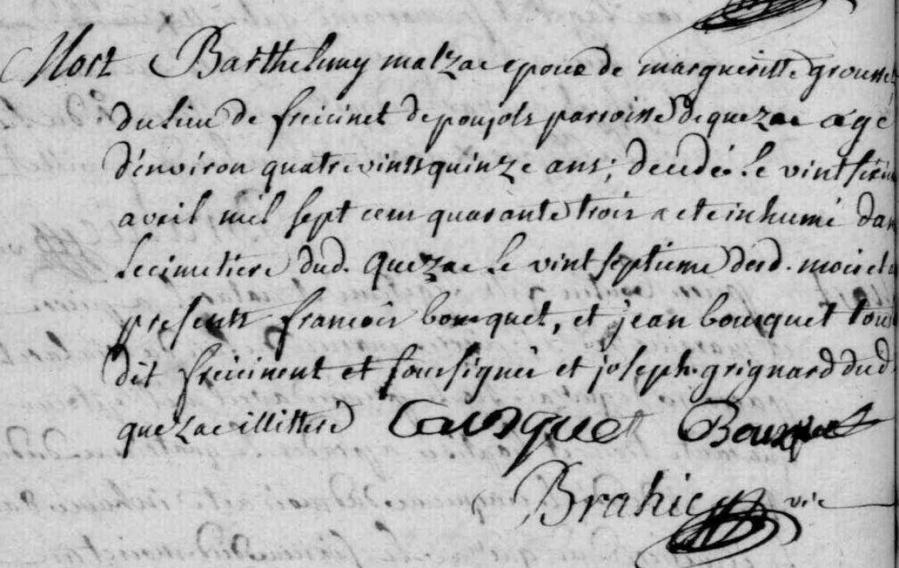 Mort Barthelemy malzac epoux de margueritte grousset
du lieu de freicinet de poujols parroisse de quezac agé
d'environ quatre vints quinze ans; decedé le vint sixie
avril mil sept cens quarante trois a eté inhumé dans
le cimetiere dud. quezac le vint septieme desd. mois et a
presents francois bousquet, et jean bousquet tous
dit freicinent et soussignés et joseph grignard dud
quezac illitteré Bousquet Bousquet
Brahic vic